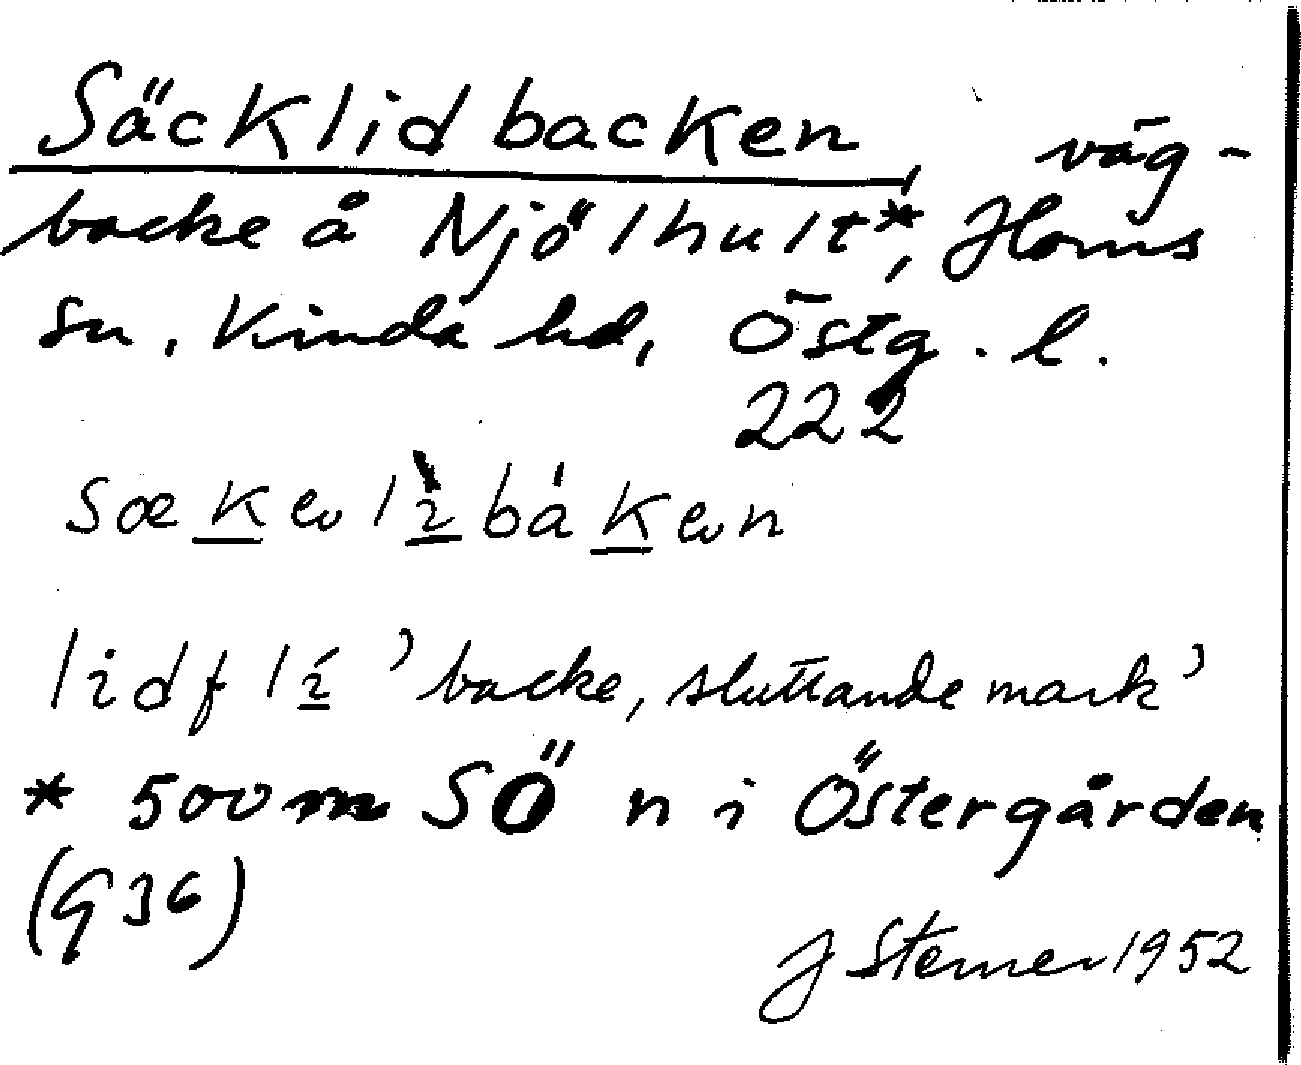 Säcklidbacken, väg-
backe å Njölhult*, Horns
sn, Kinda hd, Östg. l.
222
lid f 'backe, sluttande mark'
* 500 m SÖ n i Östergården
(936)
J Sterner 1952